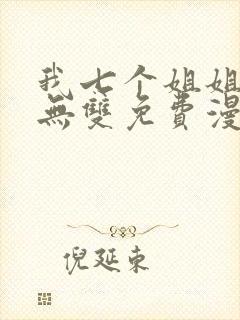 我七个姐姐
無雙免費漫
倪延東